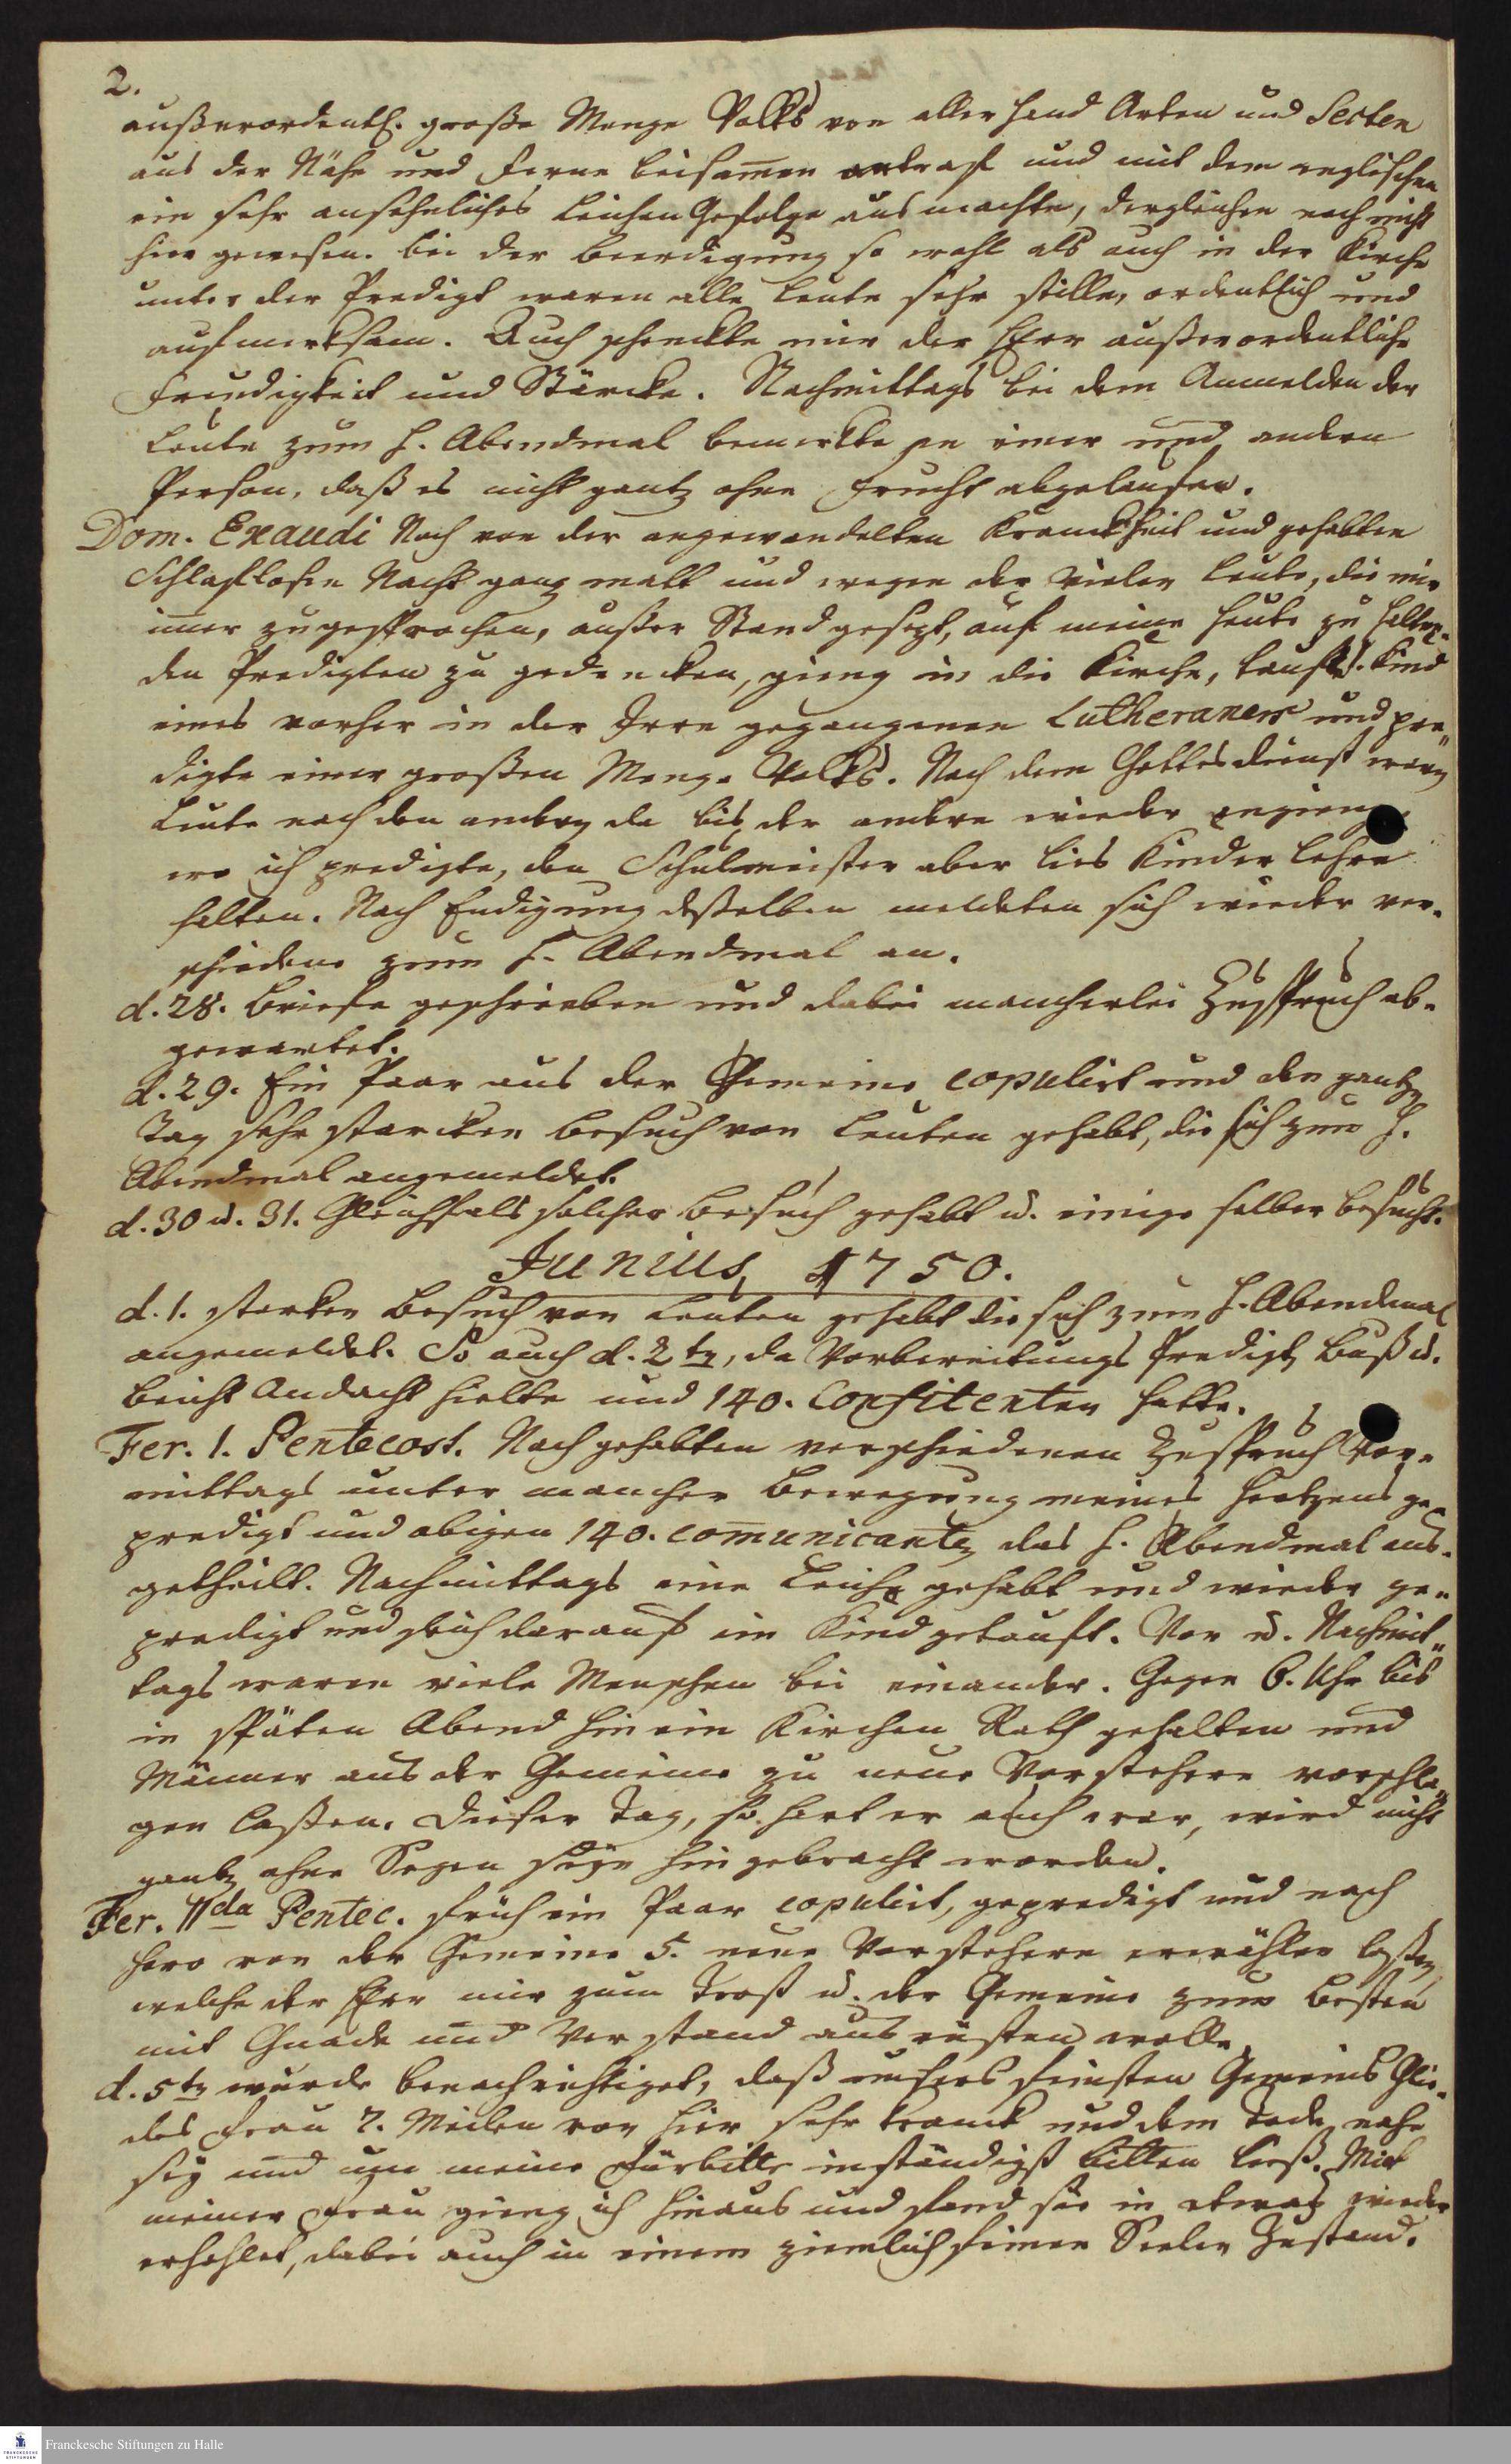 2.
außerordentl. große Menge Volks von aller hand Arten und Secten
aus der Nähe und Ferne beisamen antraf und mit dem englischen
ein sehr ansehnliches Leichen Gefolge aus machte, dergleichen noch nicht
hier gewesen. bei der Beerdigung so wohl als auch in der Kirche
unter der Predigt waren alle Leute sehr stille, ordentlich und
aufmerksam. Auch schenckte mir der Herr außerordentliche
Freudigkeit und Stärcke. Nachmittags bei dem Anmelden der
Leute zum h. Abendmal bemerckte an einer und andern
Person, daß es nicht gantz ohne Frucht abgelaufen.
Dom. Exaudi Noch von der angewandelten Kranckheit und gehabten
Schlaflosen Nacht ganz matt und wegen der vielen Leute, die mir
imer zugesprochen, außer Stand gesezt, auf meine heute zu halten-
den Predigten zu gedencken, gieng in die Kirche, taufte 1. Kind
eines vorher in der Irre gegangenen Lutheraners und pre-
digte einer großen Menge Volks. Nach dem Gottesdienst waren
Leute nach den andern da bis der andre wieder angieng,
wo ich predigte, den Schulmeister aber lies Kinder Lehre
halten. Nach Endigung deßelben meldeten sich wieder ver-
schiedene zum h. Abendmal an.
d. 28. Briefe geschrieben und dabei mancherlei Zuspruch ab-
gewartet.
d. 29. Ein Paar aus der Gemeine copulirt und den gantzen
Tag sehr starcken Besuch von Leuten gehabt, die sich zum h.
Abendmal angemeldet.
d. 30 u. 31. Gleichfals solchen Besuch gehabt u. einige selber besucht.
Junius, 1750.
d. 1. starken Besuch von Leuten gehabt die sich zum h. Abendmal
angemeldet. So auch d. 2ten, da Vorbereitungs Predigt Buß u.
Beicht Andacht hielte und 140. Confitenten hatte.
Fer. 1. Pentecost. Nach gehabten verschiedenen Zuspruch Vor-
mittags unter mancher Bewegung meines Hertzens ge-
predigt und obigen 140. comunicanten das h. Abendmal aus-
getheilt. Nachmittags eine Leiche gehabt und wieder ge-
predigt und gleich darauf ein Kind getauft. Vor u. Nachmit-
tags waren viele Menschen bei einander. Gegen 6. Uhr bis
in späten Abend hinein Kirchen Rath gehalten und
Männer aus der Gemeine zu neue Vorstehern vorschla-
gen laßen. Dieser Tag, so hart er auch war, wird nicht
gantz ohne Segen seyn hin gebracht worden.
Fer. IIda Pentec. früh ein Paar copulirt, gepredigt und nach
hero von der Gemeine 5. neue Vorstehern erwählen laßen,
welche der Herr mir zum Trost u. der Gemeine zum besten
mit Gnade und Verstand aus rüsten wolle.
d. 5ten wurde benachrichtiget, daß unsers Gemeins Glie-
des Frau 7. Meilen von hier sehr kranck und dem Tode nahe
sey und um meine Fürbitte inständigst bitten ließ. Mit
meiner Frau gieng ich hinaus und fand sie in etwas wieder
erhohlet, dabei auch in einem ziemlich feinen Seelen Zustand.
Franckesche Stiftungen zu Halle